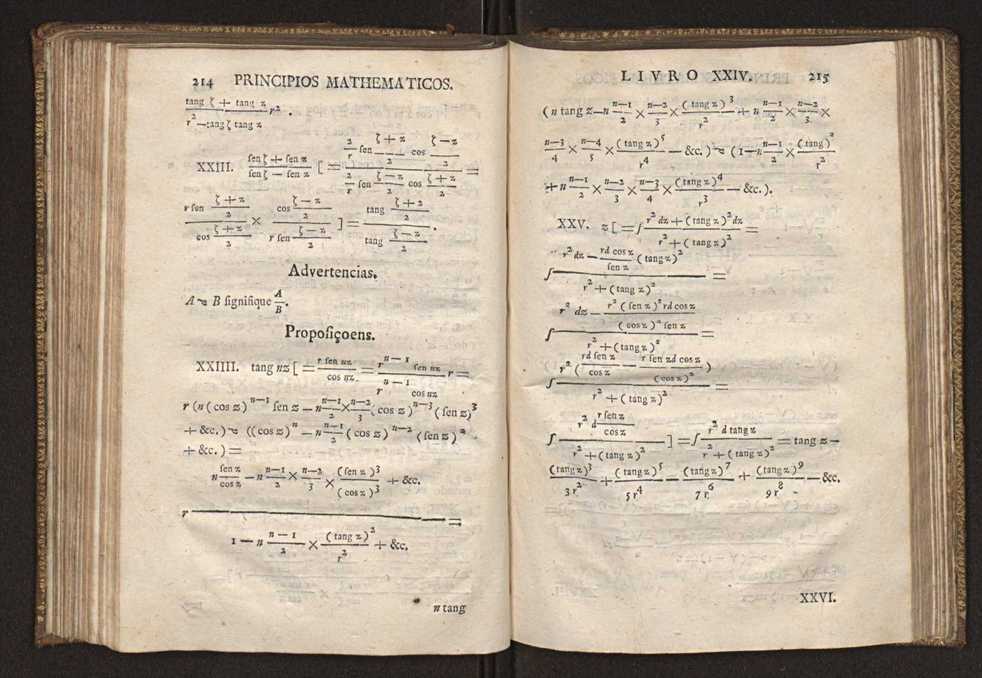 214 PRINCIPIOS MATHEMATICOS.
(tang ζ + tang z)/(r² − tang ζ tang z) r² .
XXIII. (ſen ζ + ſen z)/(ſen ζ − ſen z) [ = (2/r ſen (ζ + z)/2 coſ (ζ − z)/2)/(2/r ſen (ζ − z)/2 cos (ζ + z)/2) =
(r ſen (ζ + z)/2)/(cos (ζ + z)/2) × (cos (ζ − z)/2)/(r ſen (ζ − z)/2) ] = (tang (ζ + z)/2)/(tang (ζ − z)/2) .
Advertencias.
A ~ B ſignifique A/B.
Propoſiçoens.
XXIIII. tang nz [ = (r ſen nz)/(cos nz) = (r^(n−1) ſen nz)/(r^(n−1) cos nz) r =
r (n (cos z)^(n−1) ſen z − n (n−1)/2 × (n−2)/3 (cos z)^(n−3) (ſen z)³
+ &c.) ~ ((cos z)^n − n (n−1)/2 (cos z)^(n−2) (ſen z)²
+ &c.) =
n (ſen z)/(cos z) − n (n−1)/2 × (n−2)/3 × (ſen z)³/(cos z)³ + &c.
r ———— =
1 − n (n−1)/2 × (tang z)²/r² + &c.
n tang
LIVRO XXIV. 215
(n tang z − n (n−1)/2 × (n−2)/3 × (tang z)³/r² + n (n−1)/2 × (n−2)/3 ×
(n−3)/4 × (n−4)/5 × (tang z)⁵/r⁴ − &c.) ~ (1 − n (n−1)/2 × (tang)²/r²
+ n (n−1)/2 × (n−2)/3 × (n−3)/4 × (tang z)⁴/r³ − &c.).
XXV. z [ = ∫ (r² dz + (tang z)² dz)/(r² + (tang z)²) =
∫ (r² dz − (rd cos z)/(ſen z) (tang z)²)/(r² + (tang z)²) =
∫ (r² dz − (r² (ſen z)² rd cos z)/((cos z)² ſen z))/(r² + (tang z)²) =
∫ (r² ((rd ſen z)/(cos z) − (r ſen zd cos z)/(cos z)²))/(r² + (tang z)²) =
∫ (r² d (r ſen z)/(cos z))/(r² + (tang z)²) ] = ∫ (r² d tang z)/(r² + (tang z)²) = tang z −
(tang z)³/3r² + (tang z)⁵/5r⁴ − (tang z)⁷/7r⁶ + (tang z)⁹/9r⁸ − &c.
XXVI.